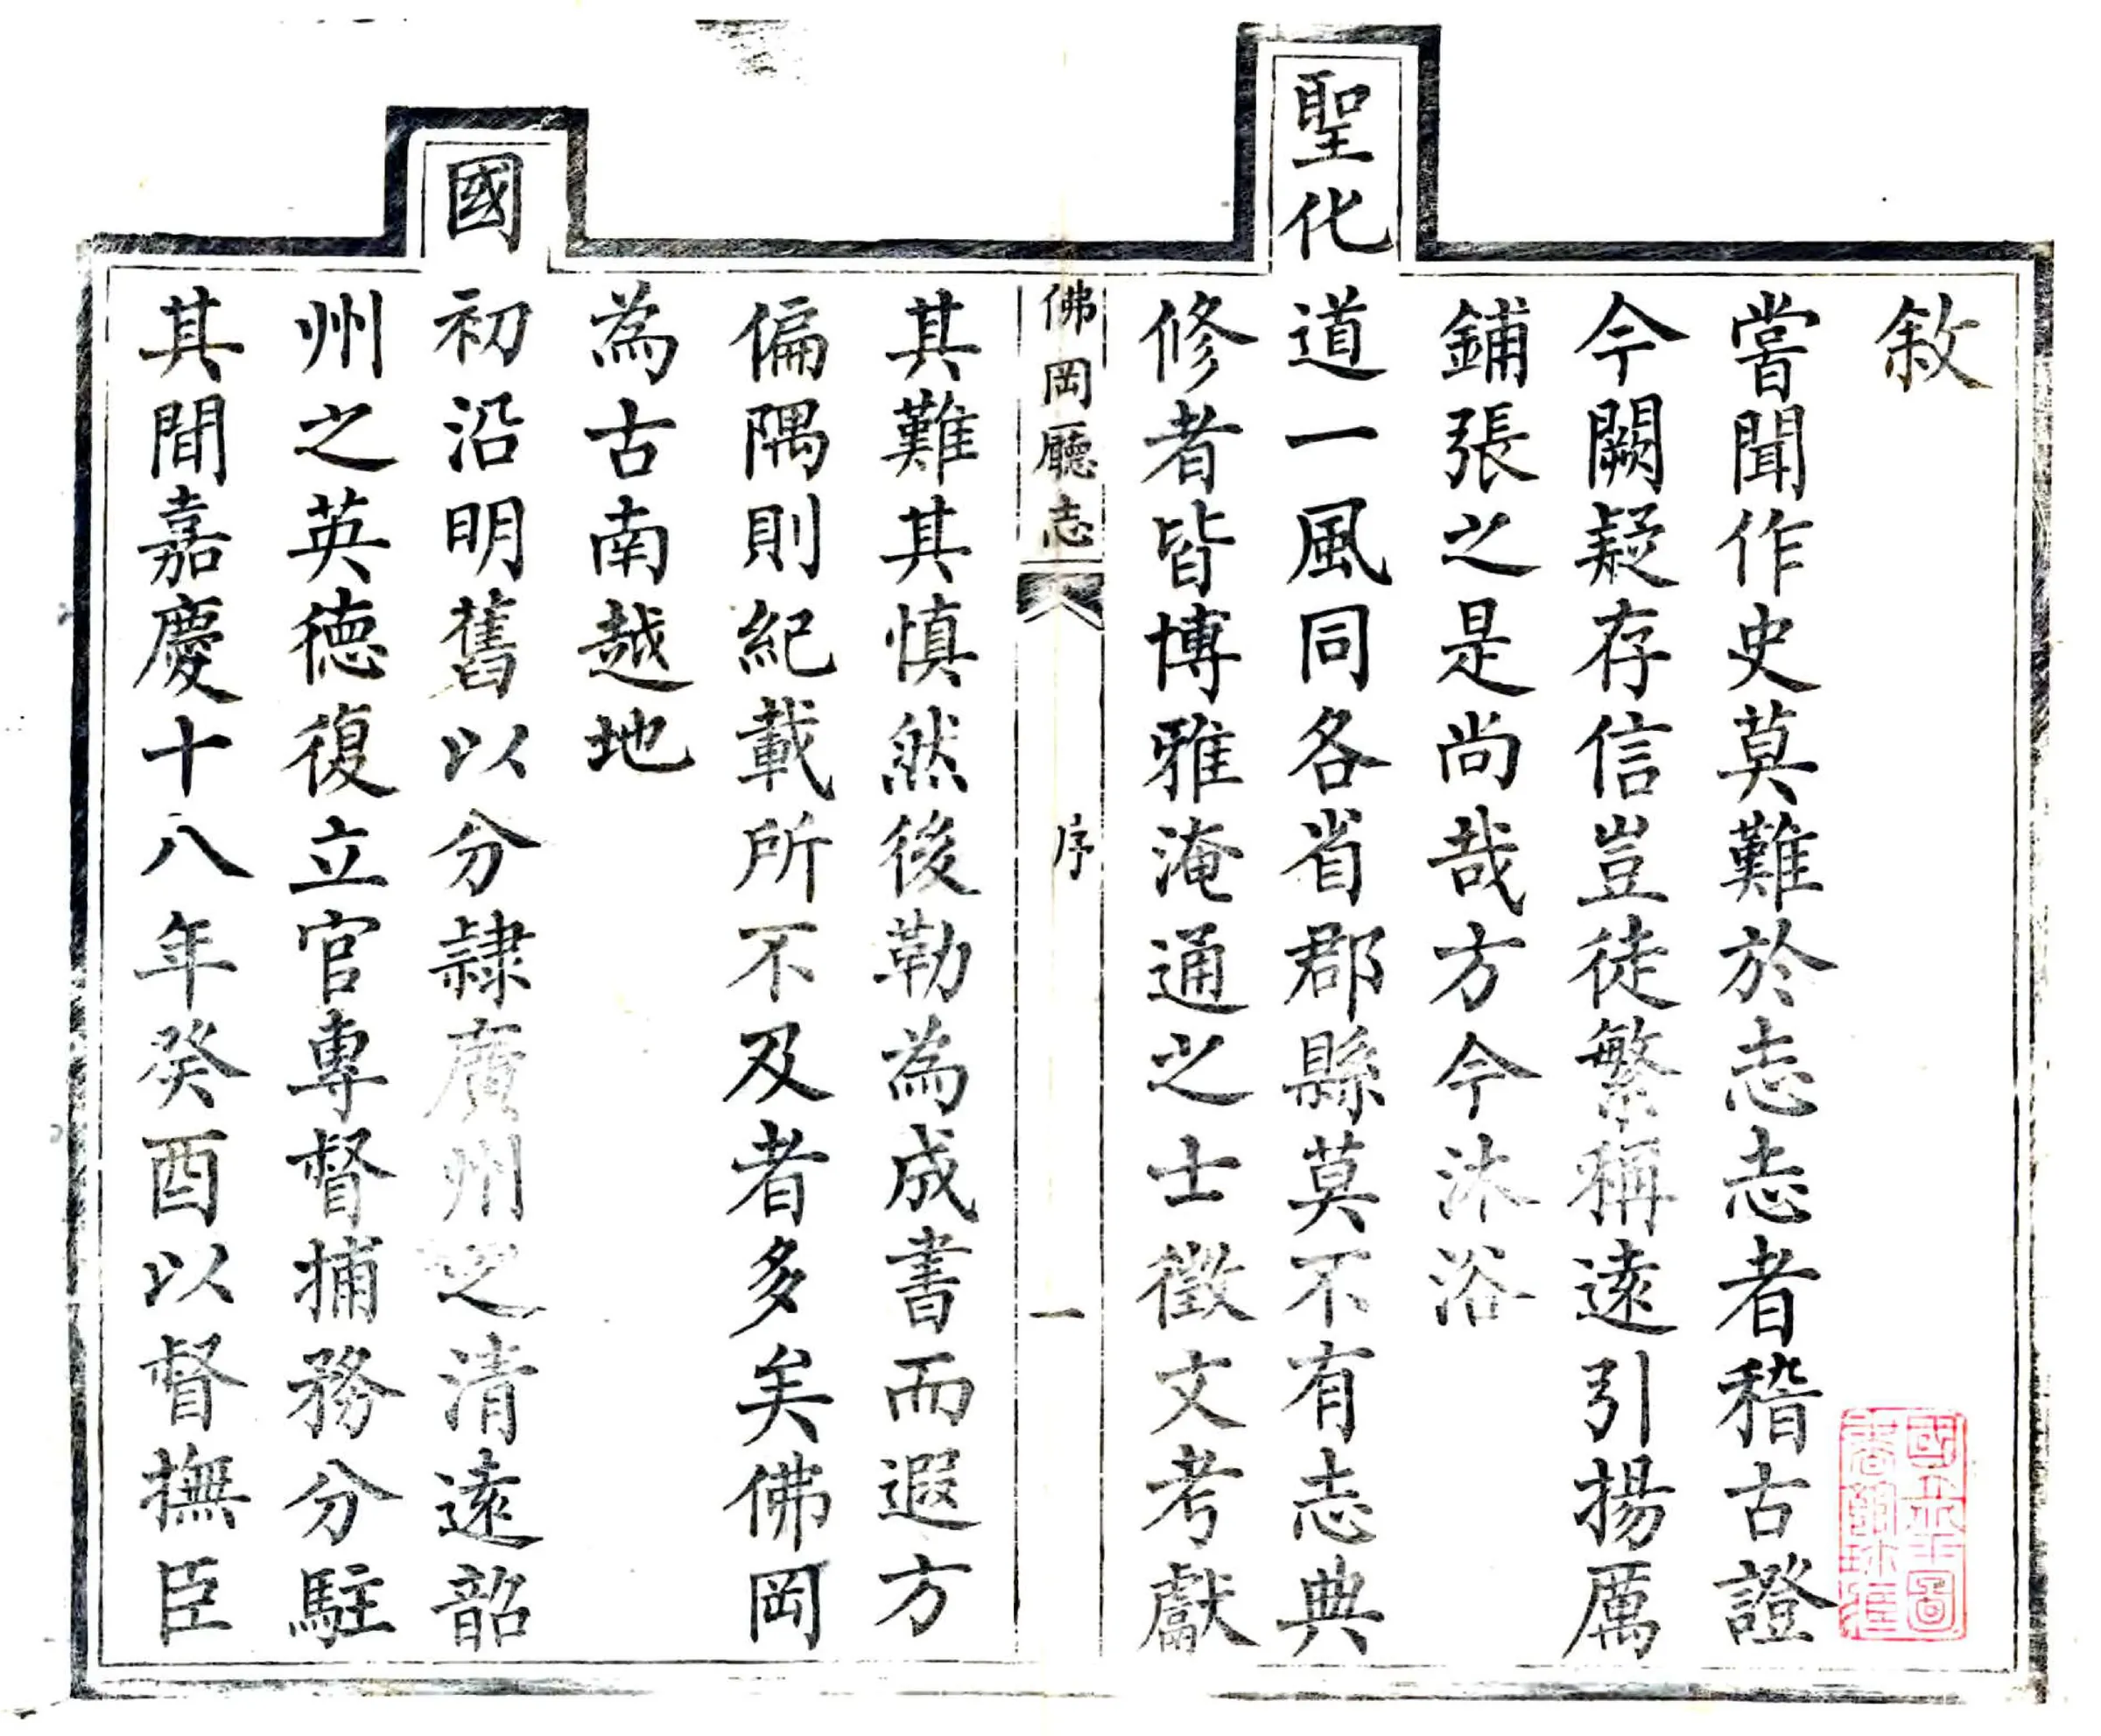 敘
嘗聞作史莫難於志志者稽古證
今闕疑存信豈徒繁稱遠引揚厲
鋪張之是尚哉方今沐浴
聖化道一風同各省郡縣莫不有志典
修者皆博雅淹通之士徵文考獻
佛岡廳志 序 一
其難其慎然後勒為成書而遐方
偏隅則紀載所不及者多矣佛岡
為古南越地
國初沿明舊以分隸廣州之清遠韶
州之英德復立官專督捕務分駐
其間嘉慶十八年癸酉以督撫臣